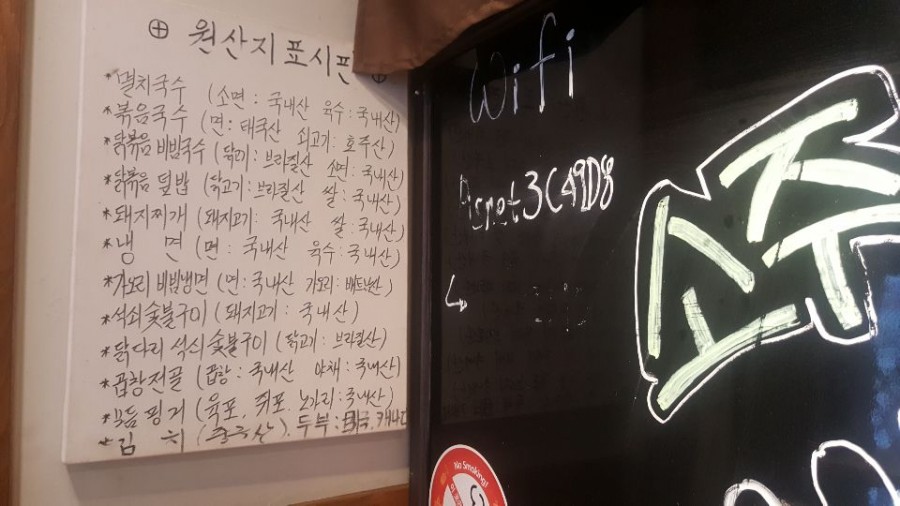 ⊕ 원산지표시판 ⊕
*멸치국수 (소면: 국내산 육수: 국내산)
*볶음국수 (면: 태국산 쇠고기: 호주산)
*닭볶음 비빔국수 (닭고기: 브라질산 소면: 국내산)
*닭볶음 덮밥 (닭고기: 브라질산 쌀: 국내산)
*돼지찌개 (돼지고기: 국내산 쌀: 국내산)
*냉 면 (면: 국내산 육수: 국내산)
*가오리 비빔냉면 (면: 국내산 가오리: 베트남산)
*석쇠숯불구이 (돼지고기: 국내산)
*닭다리 석쇠숯불구이 (닭고기: 브라질산)
*곱창전골 (곱창: 국내산 야채: 국내산)
*모듬 핑거 (육포, 쥐포, 노가리: 국내산)
*김 치 (중국산). 두부: 미국, 캐나다
Wifi
3CA9D8
소주
No Smoking!